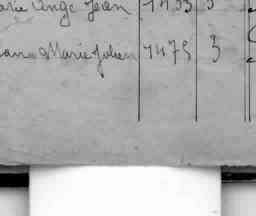 Marie Ange Jean 1453 3
Jean Marie Julien 1475 3